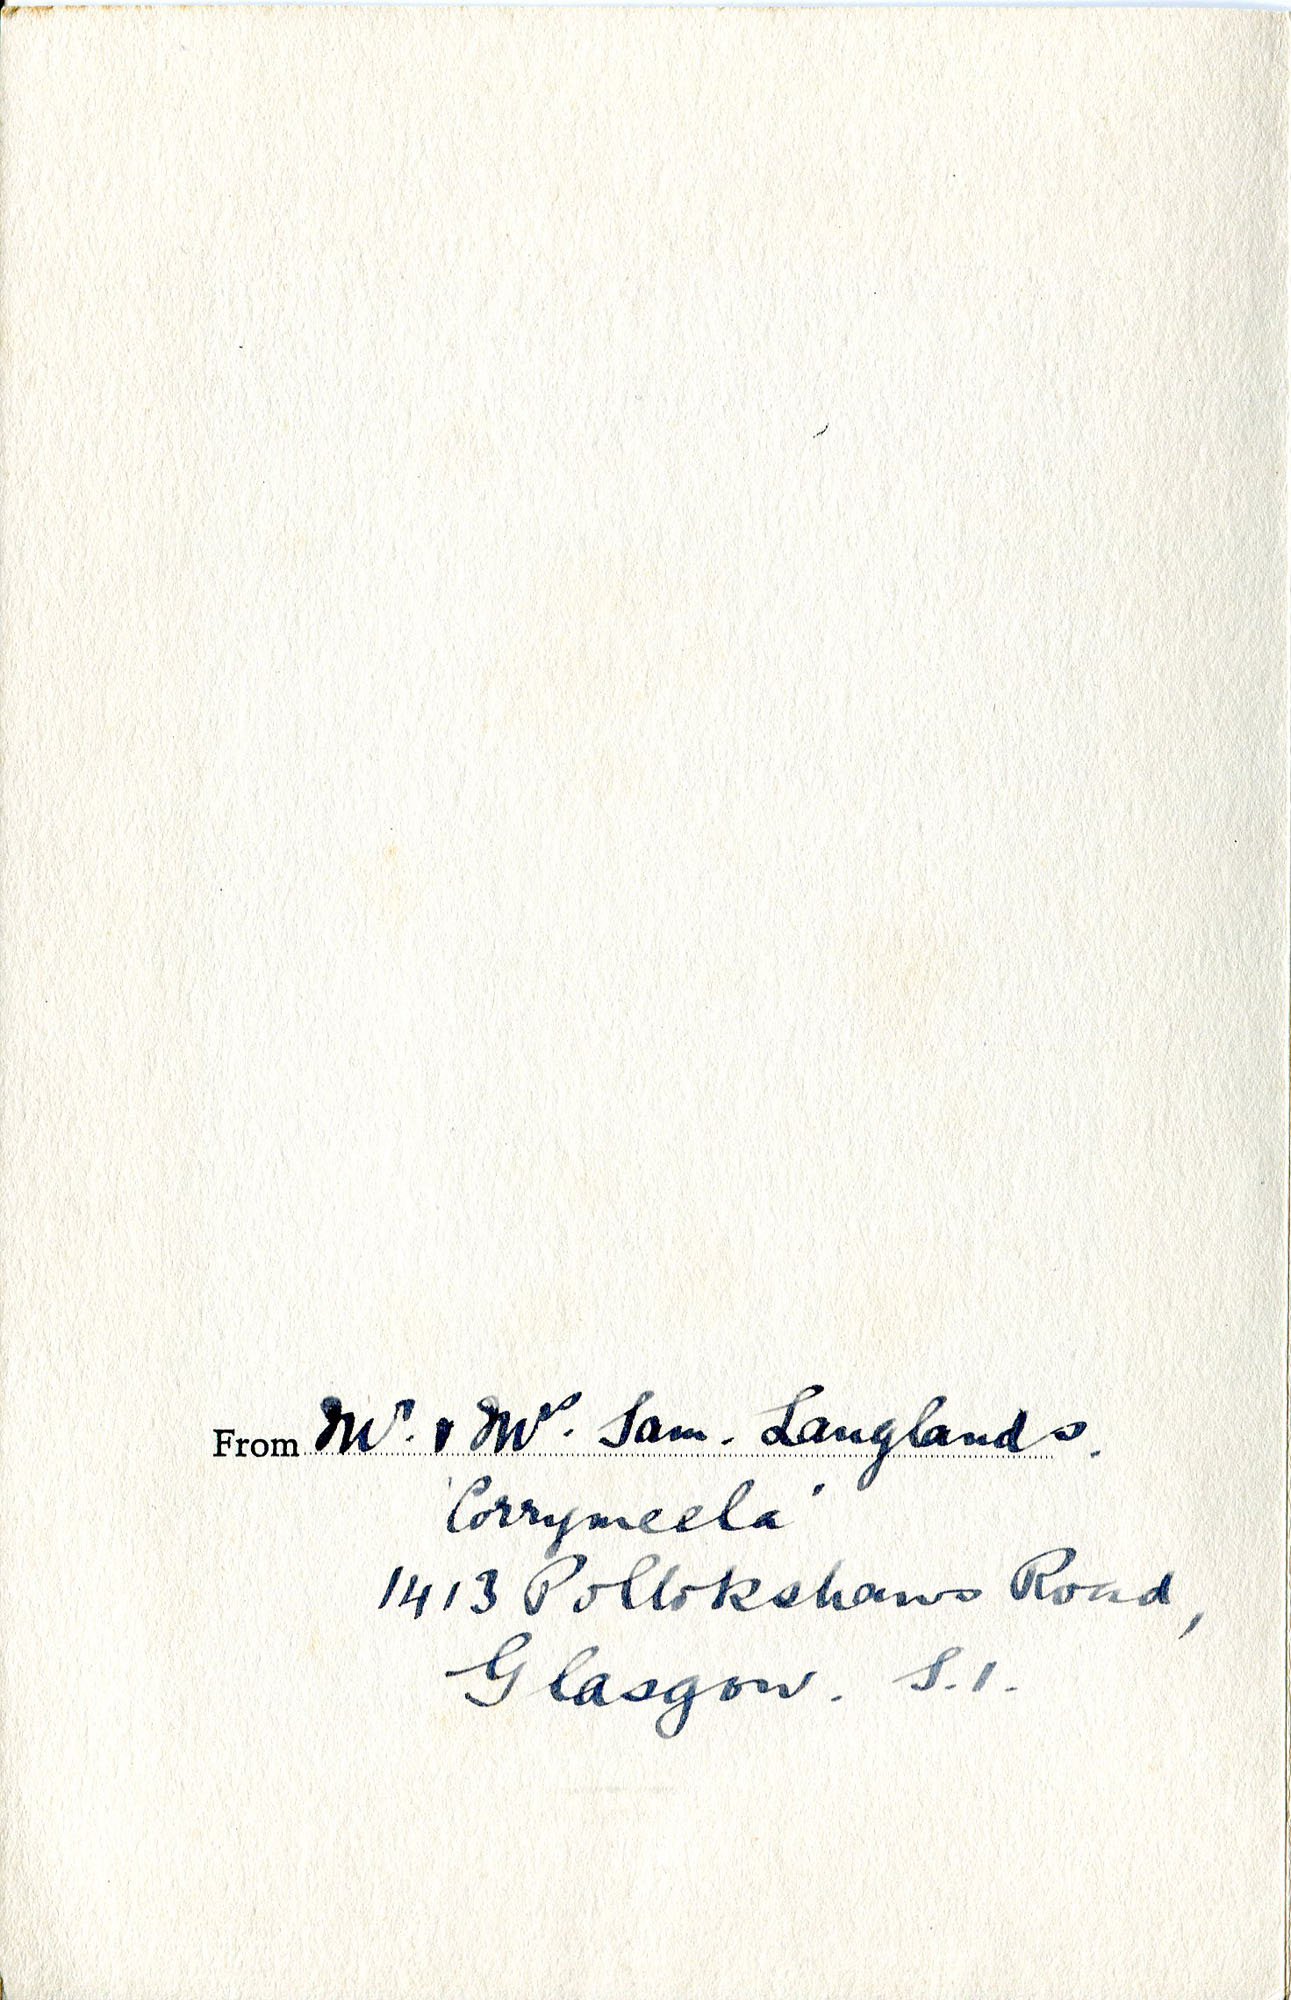 From Mr. & Mrs. Sam. Langlands.
'Corrymeela'
1413 Pollokshaws Road,
Glasgow. S.1.